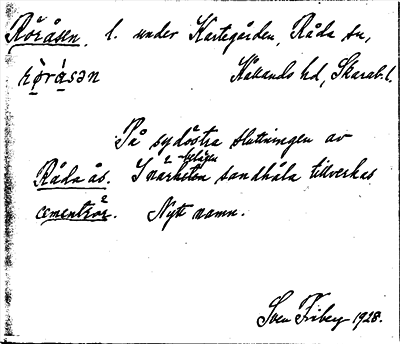 Röråsen. l. under Kartegården, Råda sn,
Kållands hd, Skarab. l.
På sydöstra sluttningen av
Råda ås. I närheten belägen sandhåla tillverkas
cementrör. Nytt namn.
Sven Friberg 1928.